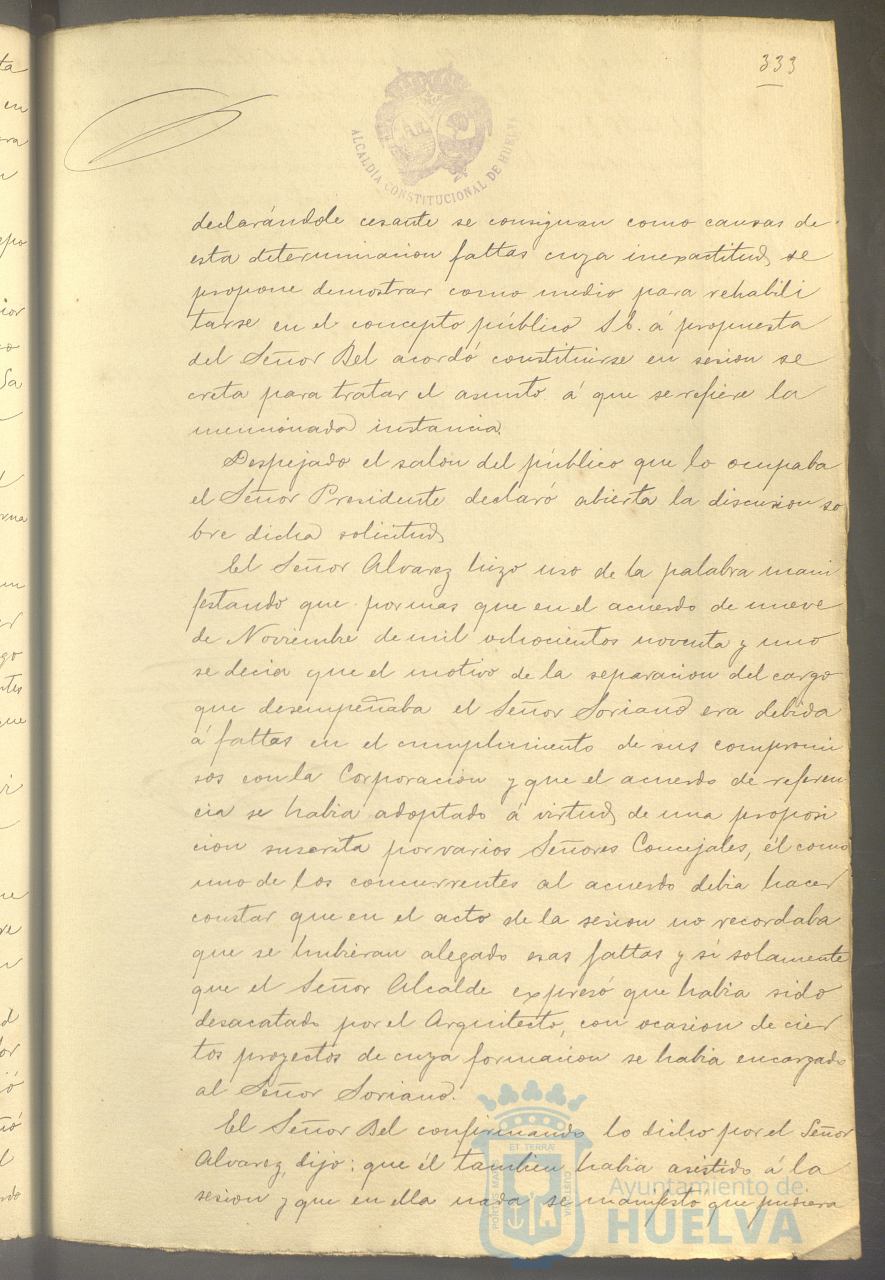 333
ALCALDIA CONSTITUCIONAL DE HUELVA
declarándole cesante se consignan como causas de
esta determinacion faltas cuya inexactitud, se
propone demostrar como medio para rehabili
tarse en el concepto público S.E. á propuesta
del Señor Bel acordó constituirse en sesion se
creta para tratar el asunto á que se refiere la
mencionada instancia.
Despejado el salon del público que lo ocupaba
el Señor Presidente declaró abierta la discusion so
bre dicha solicitud
El Señor Alvarez hizo uso de la palabra mani
festando que por mas que en el acuerdo de nueve
de Noviembre de mil ochocientos noventa y uno
se decia que el motivo de la separacion del cargo
que desempeñaba el Señor Soriano era debida
á faltas en el cumplimiento de sus compromi
sos con la Corporacion y que el acuerdo de referen
cia se habia adoptado á virtud, de una proposi
cion suscrita por varios Señores Concejales, él como
uno de los concurrentes al acuerdo debia hacer
constar que en el acto de la sesion no recordaba
que se hubieran alegado esas faltas y si solamente
que el Señor Alcalde expresó que habia sido
desacatado por el Arquitecto, con ocasion de cier
tos proyectos de cuya formacion se habia encargado
al Señor Soriano.
El Señor Bel confirmando lo dicho por el Señor
Alvarez, dijo: que él tambien habia asistido á la
sesion y que en ella nada se manifestó que pudiera
PORTUS MARIS ET TERRAE CUSTODIA
Ayuntamiento de
HUELVA